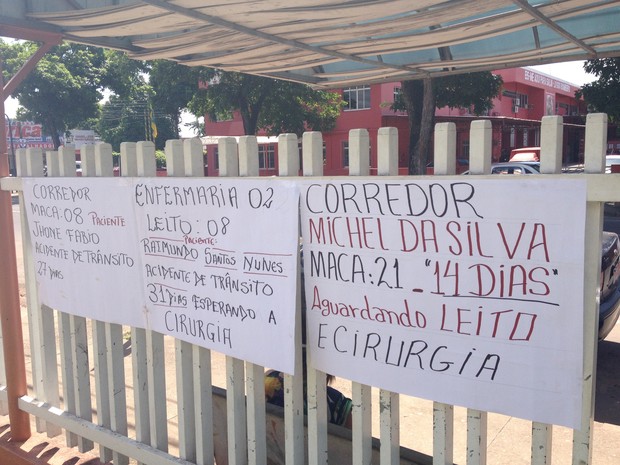 CORREDOR
MACA:08 PACIENTE
JHONE FABIO
ACIDENTE DE TRÂNSITO
27 DIAS
ENFERMARIA 02
LEITO:08
PACIENTE:
RAIMUNDO SANTOS NUNES
ACIDENTE DE TRÂNSITO
31 DIAS ESPERANDO A
CIRURGIA
CORREDOR
MICHEL DA SILVA
MACA:21 - "14 DIAS"
Aguardando LEITO
E CIRURGIA